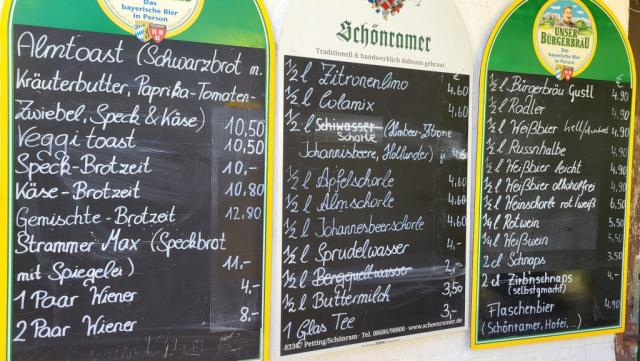 Das
bayerische Bier
in Person
Almtoast (Schwarzbrot m.
Kräuterbutter, Paprika-Tomaten-
Zwiebel, Speck & Käse) 10,50
Veggitoast 10,50
Speck-Brotzeit 10,-
Käse-Brotzeit 10,80
Gemischte-Brotzeit 12,80
Strammer Max (Speckbrot
mit Spiegelei) 11,-
1 Paar Wiener 4,-
2 Paar Wiener 8,-
Schönramer
Traditionell & handwerklich dahoam gebraut.
€
½ l Zitronenlimo 4.60
½ l Colamix 4.60
½ l Schiwasser
Schorle (Himbeer-Zitrone
Johannisbeere, Hollunder) 4.60
½ l Apfelschorle 4.60
½ l Almschorle 4.60
½ l Johannesbeerschorle 4.60
½ l Sprudelwasser 4.-
½ l Bergquellwasser 2.-
½ l Buttermilch 3,50
1 Glas Tee 3,-
83367 Petting/Schönram · Tel. 08686/98800 · www.schoenramer.de
UNSER
BÜRGERBRÄU
Das
bayerische Bier
in Person
€
½ l Bürgerbräu Gustl 4.90
½ l Radler 4.90
½ l Weißbier hell/dunkel 4.90
½ l Russnhalbe 4.90
½ l Weißbier leicht 4.90
½ l Weißbier alkoholfrei 4.90
½ l Weinschorle rot/weiß 6,50
¼ l Rotwein 5.50
¼ l Weißwein 5.50
2 cl Schnaps 3.50
2 cl Zirbnschnaps 4.-
(selbstgmacht)
Flaschenbier 4,90
(Schönramer, Hofei,...)